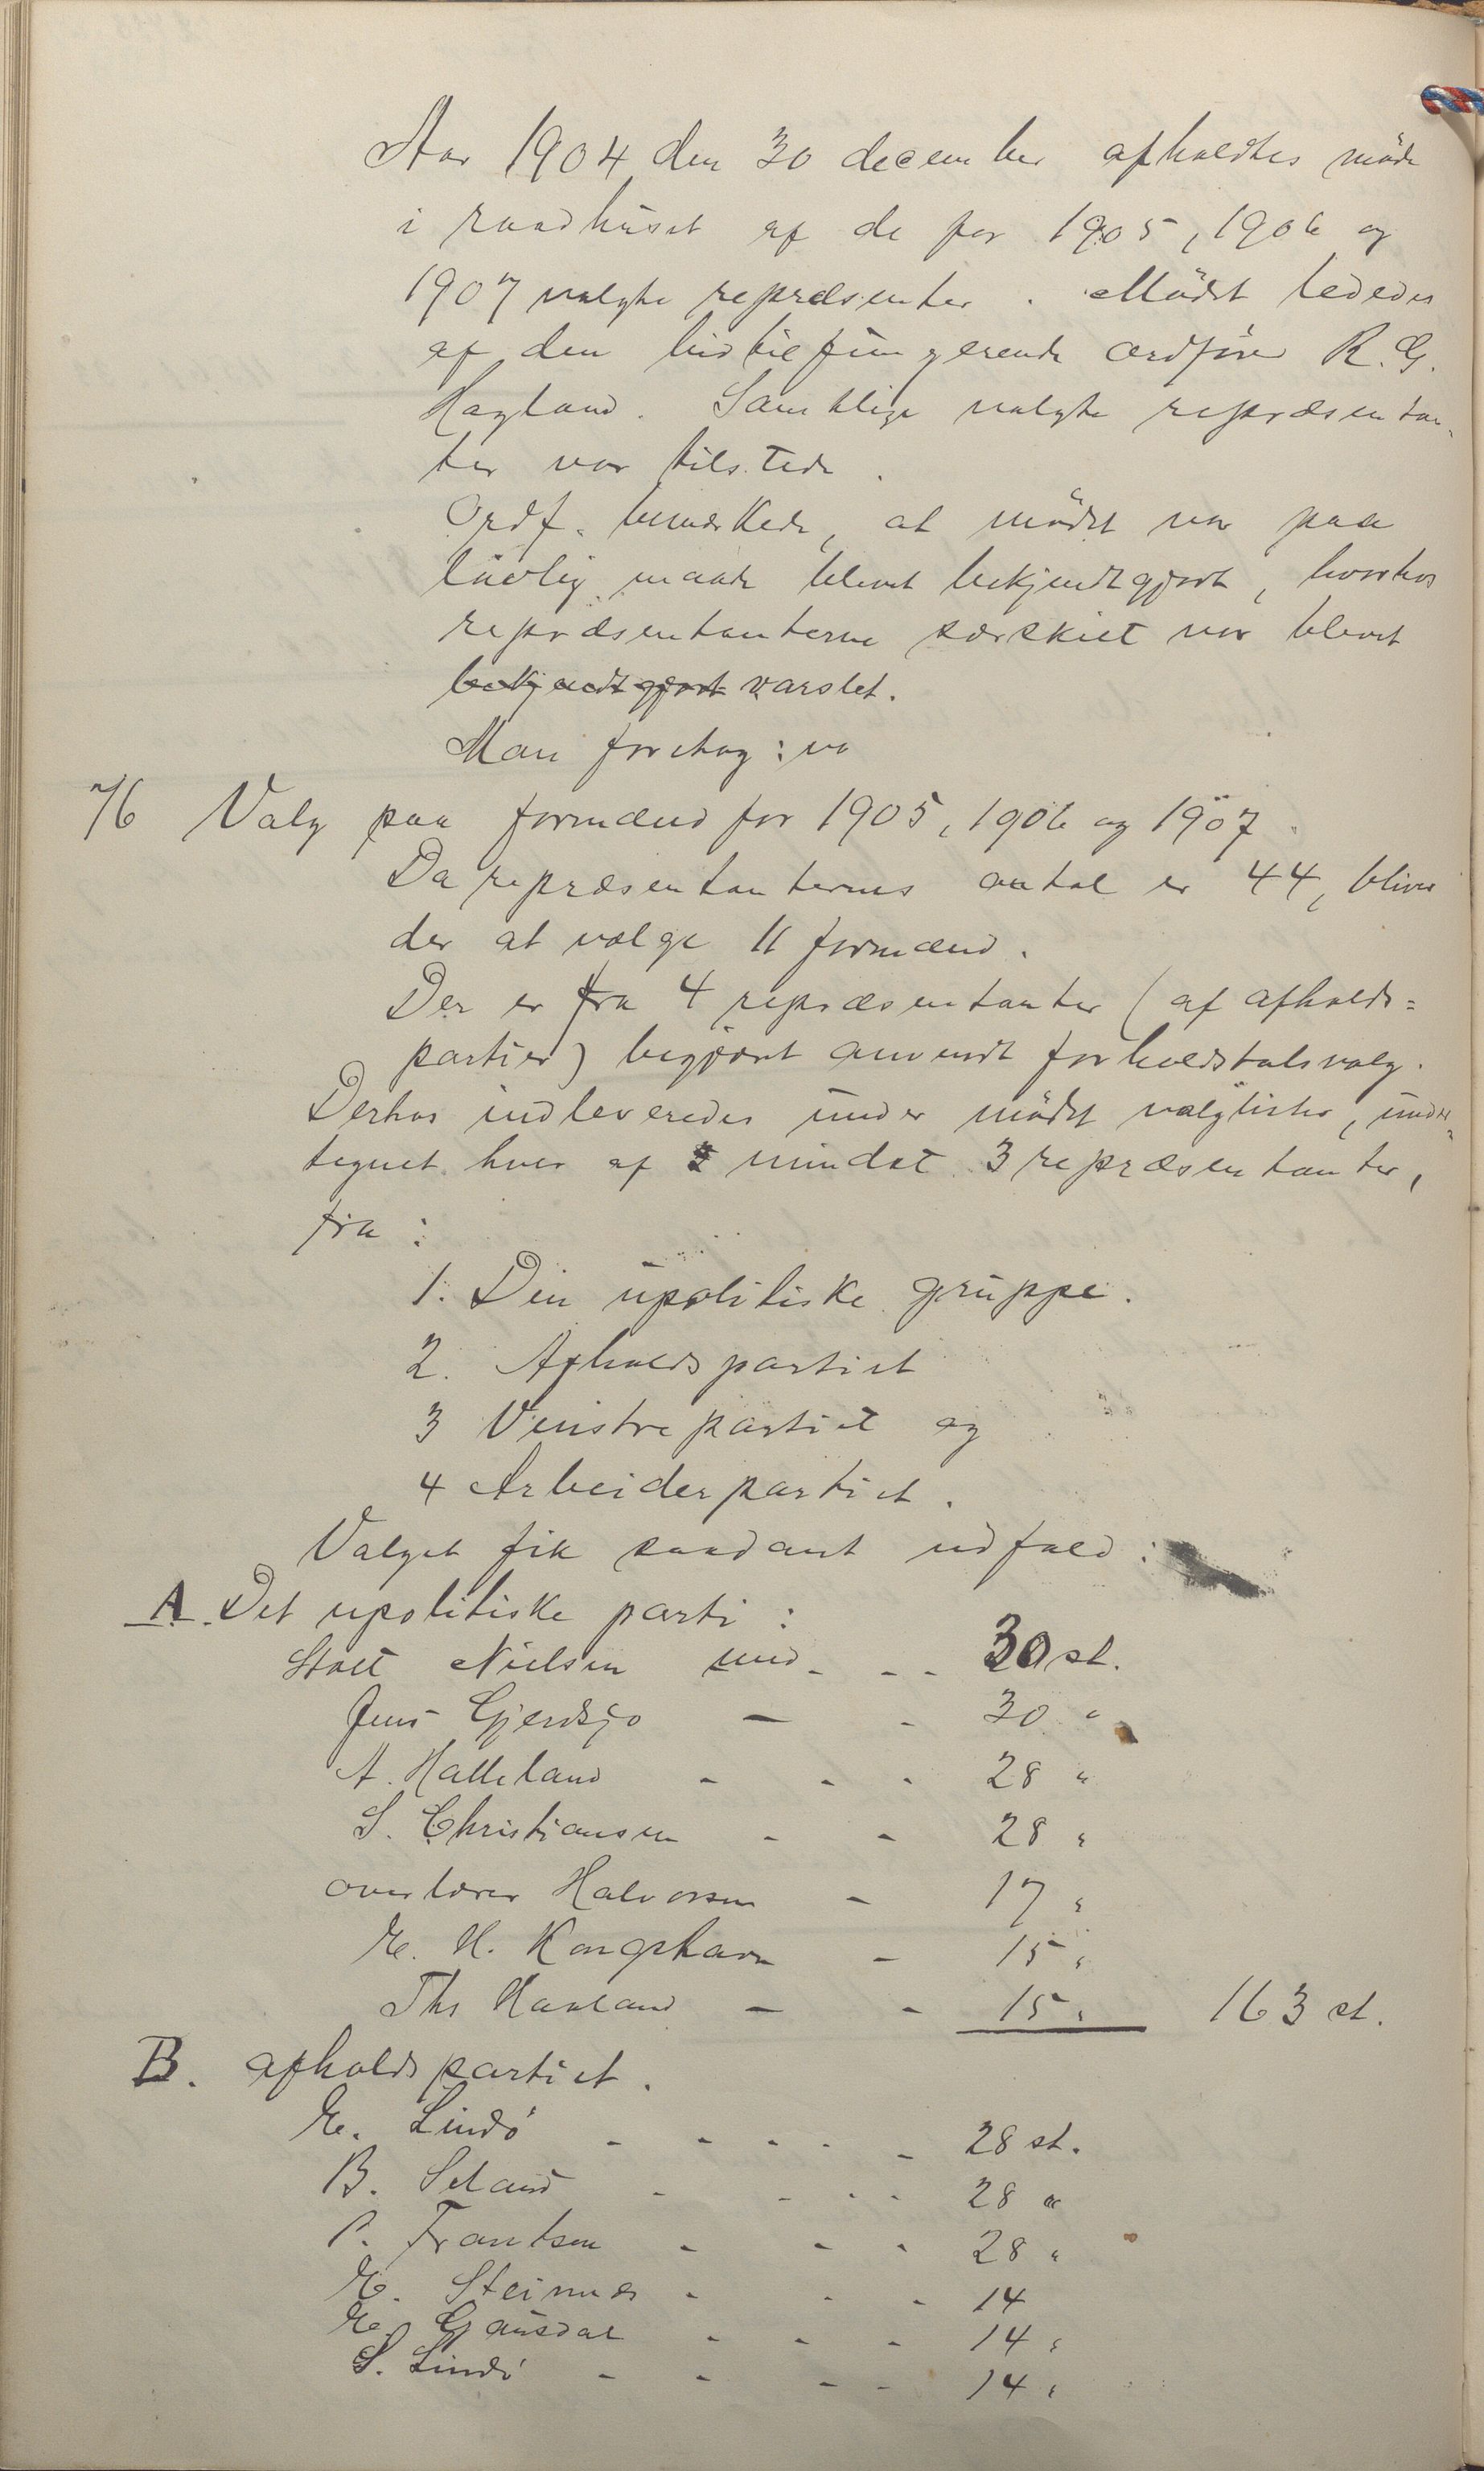 Aar 1904 den 30 december afholdtes möde
i raadhuset af de for 1905, 1906 og
1907 valgte repræsenter. Mödet lededes
af den hidtil fungerende ordförer R. G.
Hagland. Samtlige valgte repræsentan-
ter var tilstede.
Ordf. bemærkede, at mödet var paa
lovlig maade blevet bekjendtgjort, hvorhos
repræsentanterne særskilt var blevet
bekjendtgjort varslet.
Man foretog:
76 Valg paa formænd for 1905, 1906 og 1907.
Da repræsentanternes antal er 44, bliver
der at vælge 11 formænd.
Der er fra 4 repræsentanter (af afholds=
partiet) begjært anvendt forholdstalsvalg.
Derhos indleveredes under mödet valglister, under-
tegnet hver af mindst 3 repræsentanter,
fra:
1. Den upolitiske gruppe.
2. Afholdspartiet
3 Venstrepartiet og
4 Arbeiderpartiet.
Valget fik saadant udfald:
A. Det upolitiske parti:
Stolt Nielsen med - - 30 st.
Jens Gjerdsjø — - 30 "
A. Halleland - - - 28 "
S. Christiansen - - 28 "
overlærer Halvorsen - 17 "
E. H. Kongshavn - 15 "
Ths Haaland — - 15 " 163 st.
B. afholdspartiet.
E. Lindö - - - - - 28 st.
B. Seland - - - - 28 "
P. Frantsen - - - 28 "
E. Steinnes - - - 14
E. Gausdal - - - 14 "
S. Lindö - - - - 14 "